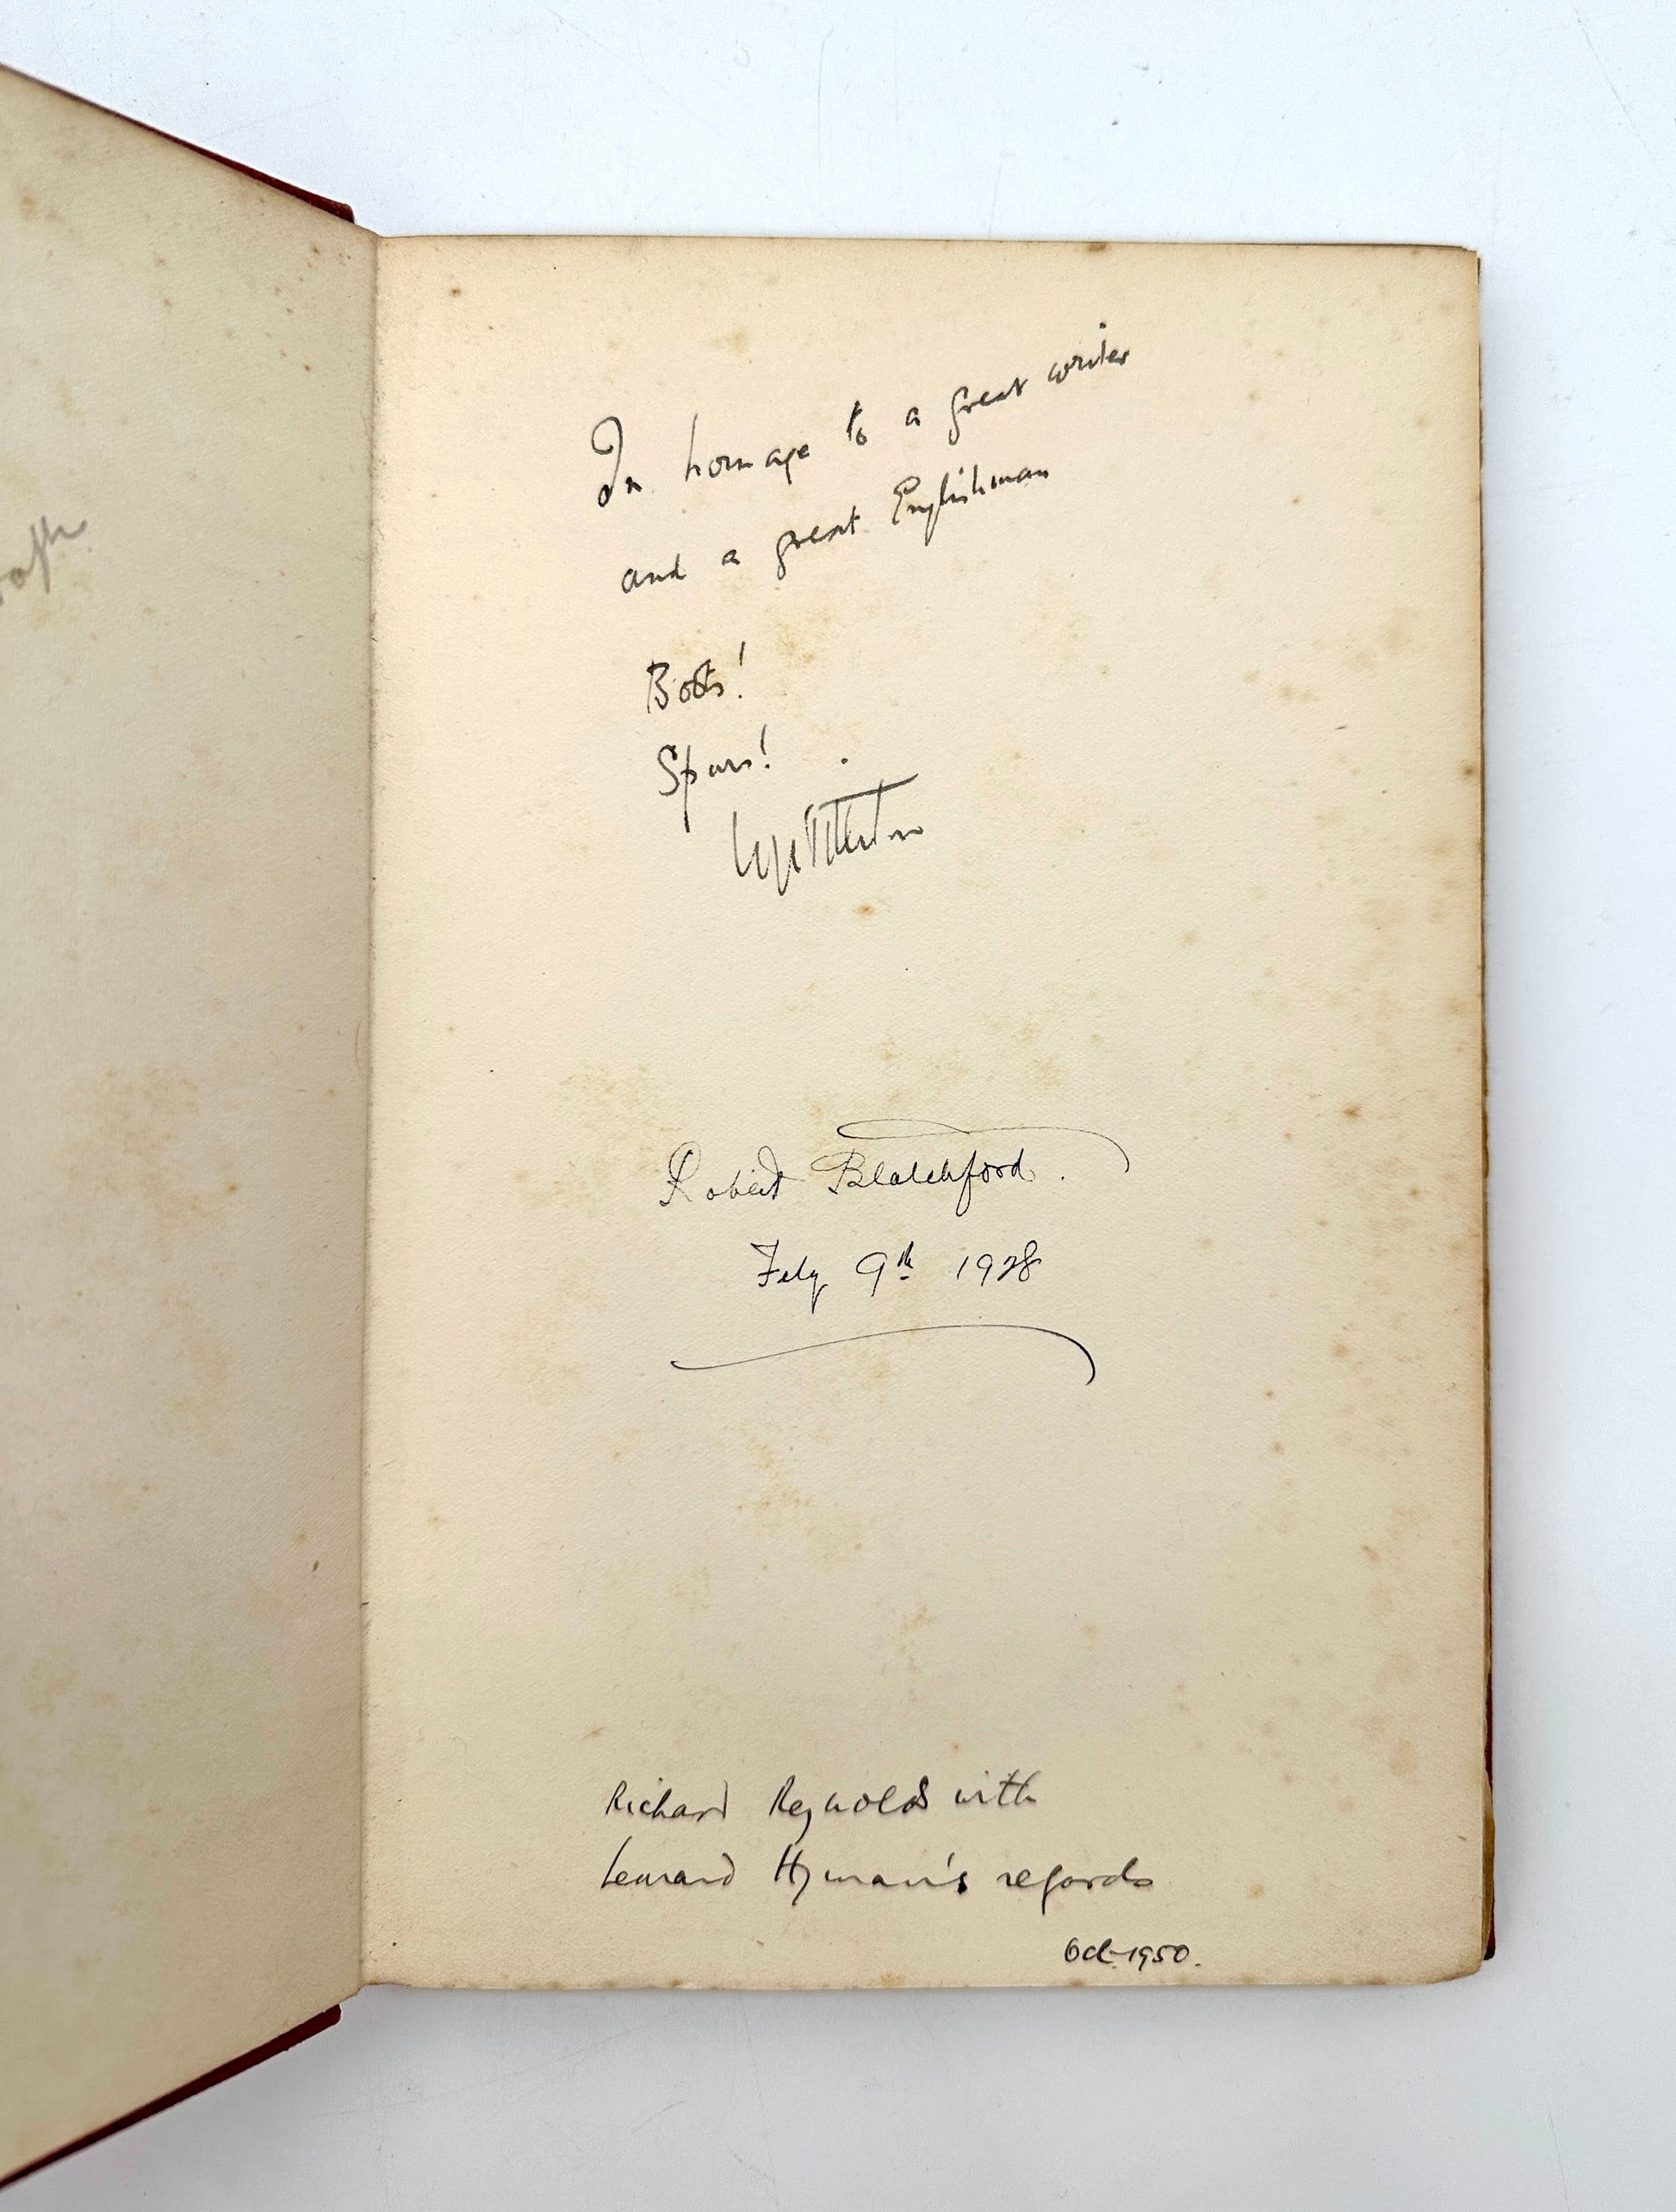 In homage to a great writer
and a great Englishman
Boots!
Spurs!
Robert Blatchford.
Feby 9th 1928
Richard Reynolds with
Leonard Hyman's regards
Oct. 1950.